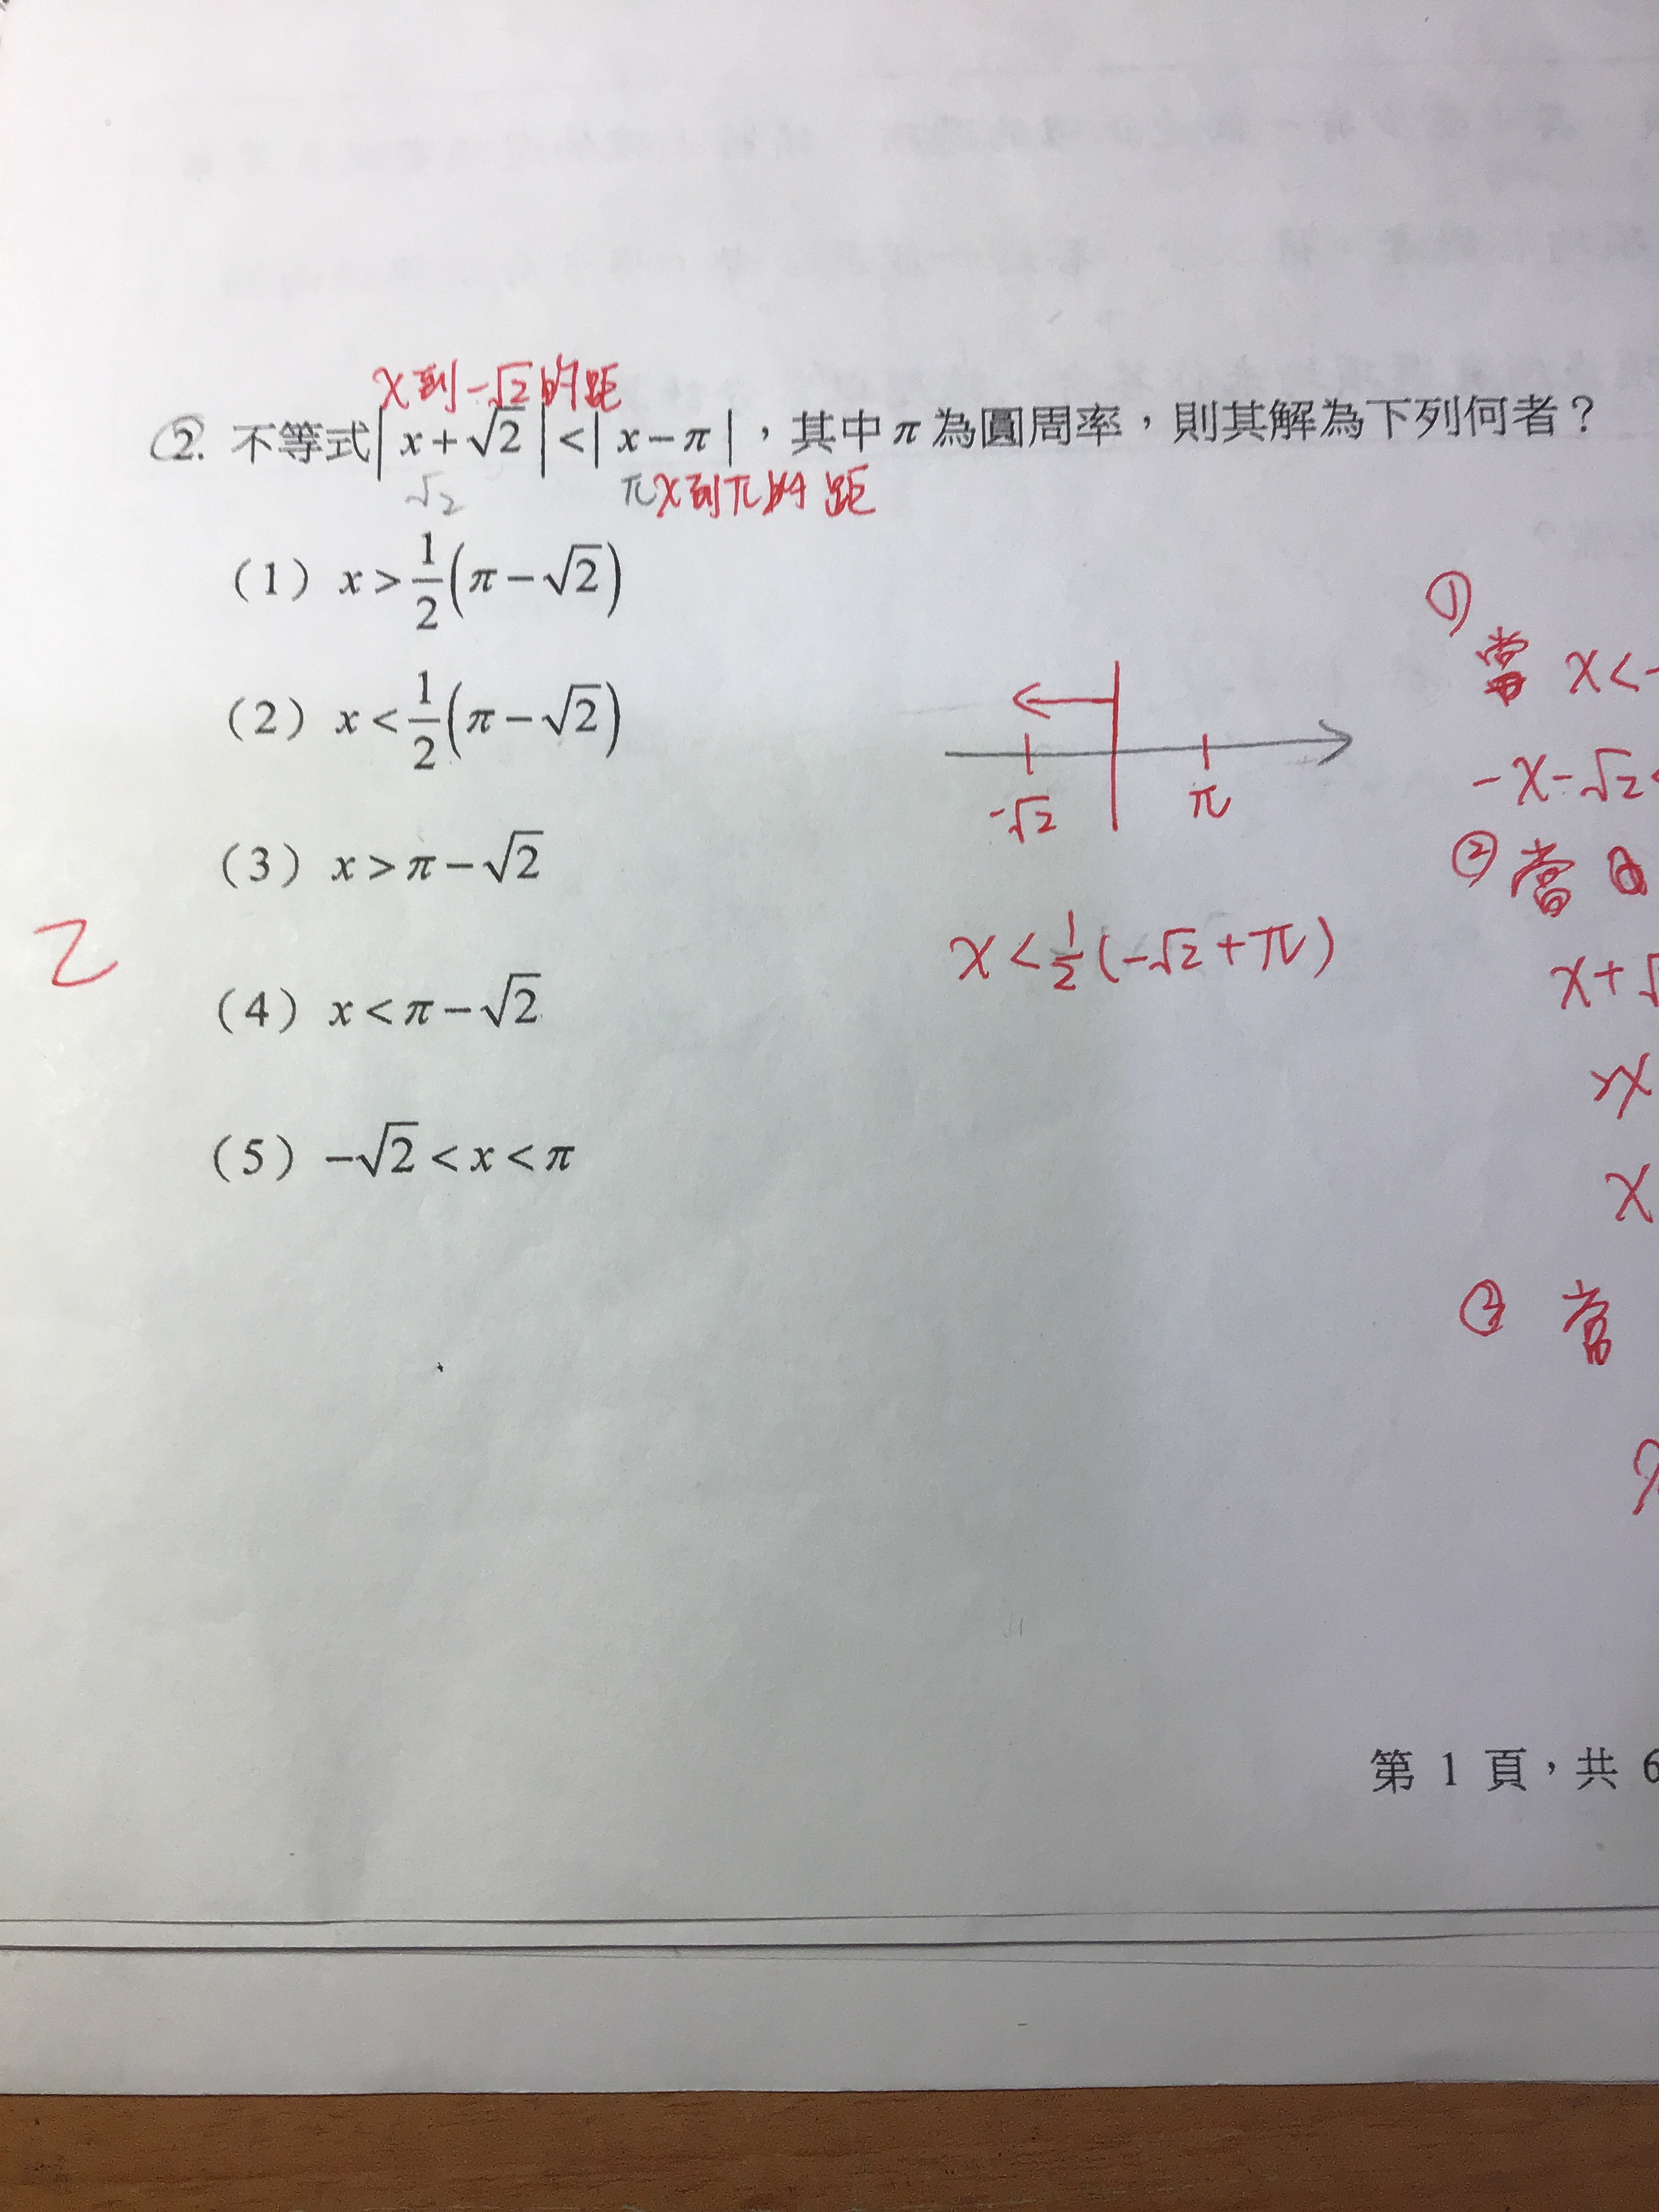 x到-√2的距
2. 不等式|x+√2|<|x-π|，其中π為圓周率，則其解為下列何者？
√2 π x到π的距
(1) x>1/2(π-√2)
(2) x<1/2(π-√2)
(3) x>π-√2
(4) x<π-√2
(5) -√2<x<π
2
-√2 π
x<1/2(-√2+π)
①
當 x<-
-x-√2<
② 當
x+√
x
x
當
第 1 頁，共 6